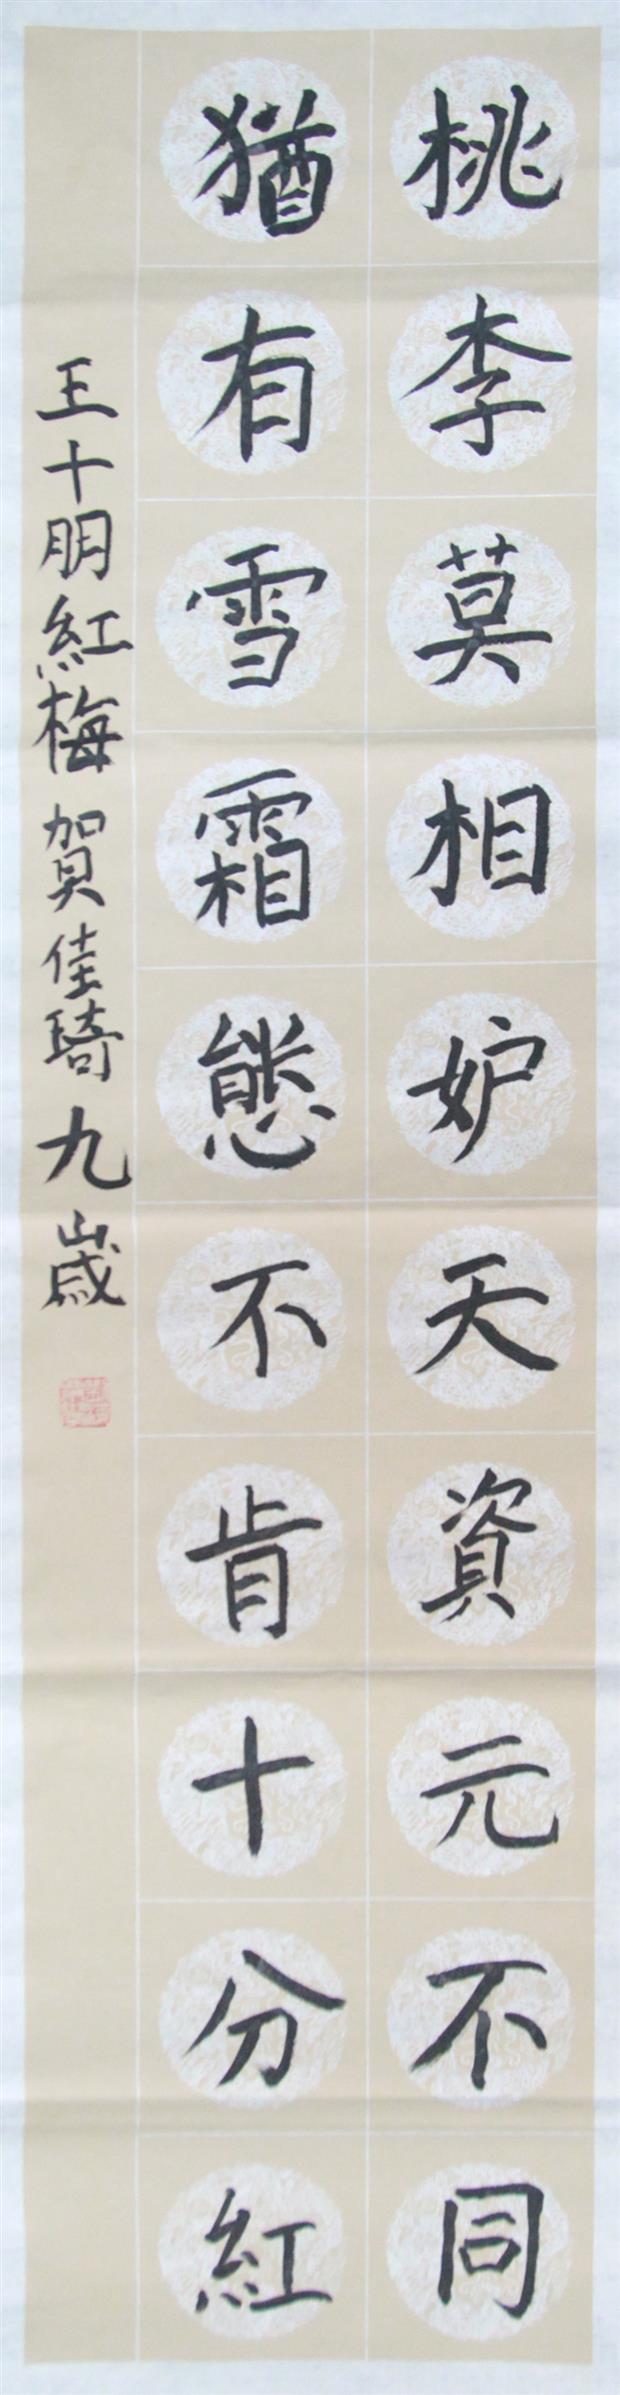 桃李莫相妒天資元不同
猶有雪霜態不肯十分紅
王十朋紅梅賀佳琦九歲